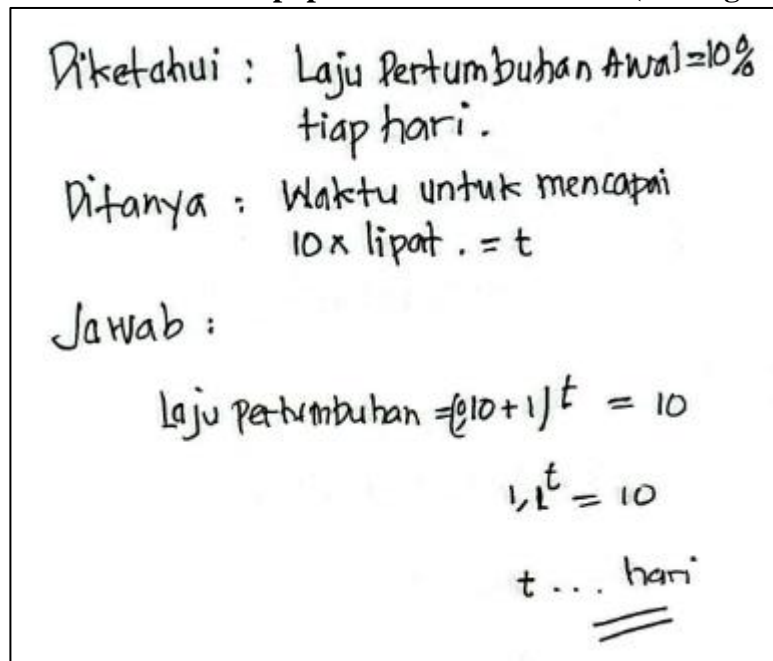 Diketahui : Laju Pertumbuhan Awal = 10%
tiap hari.
Ditanya : Waktu untuk mencapai
10 x lipat . = t
Jawab :
Laju Pertumbuhan = (0,10 + 1)^t = 10
1,1^t = 10
t ... hari